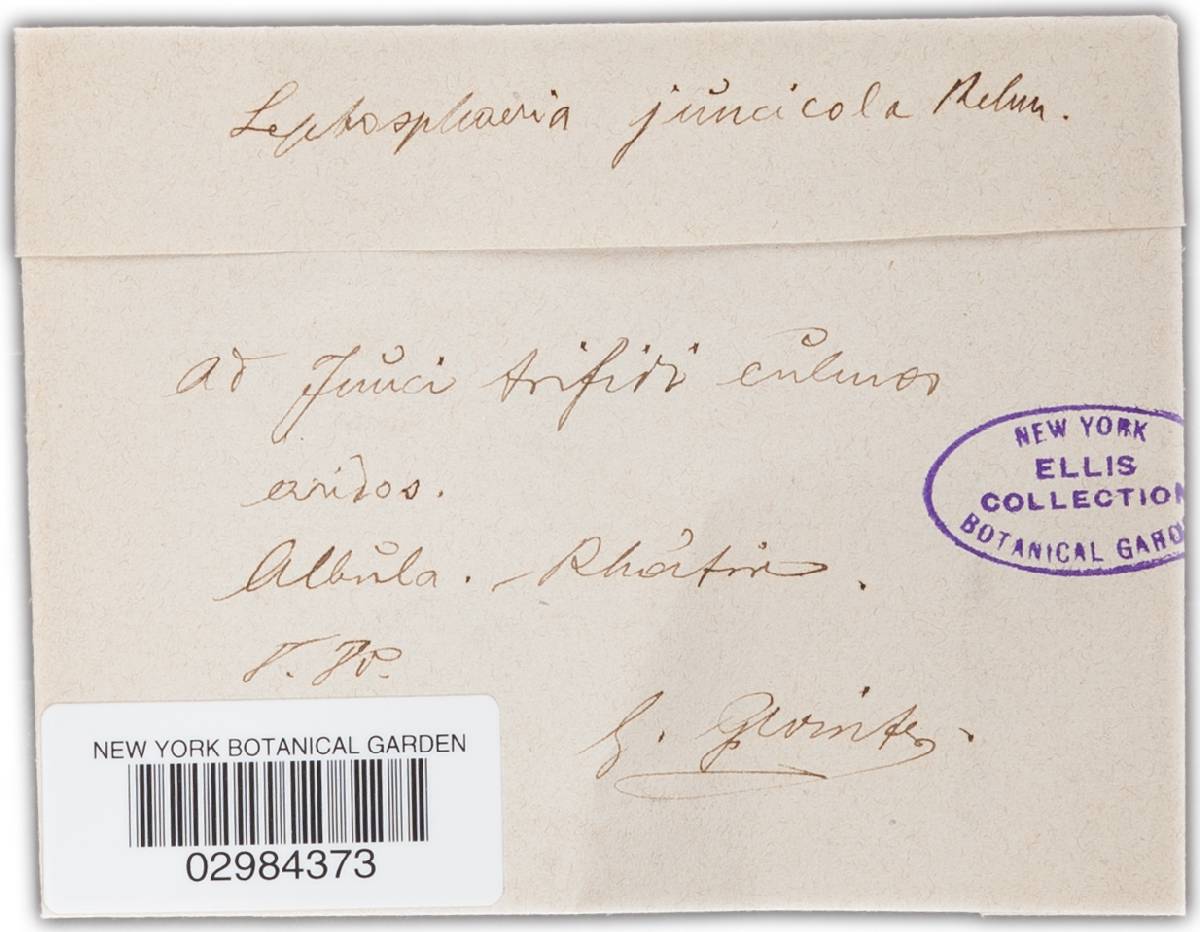 Leptosphaeria juncicola Rehm.
ad Junci trifidi culmos
aridos.
Albula. - Rhätia.
G. Winter.
NEW YORK
ELLIS
COLLECTION
BOTANICAL GARD
NEW YORK BOTANICAL GARDEN
02984373